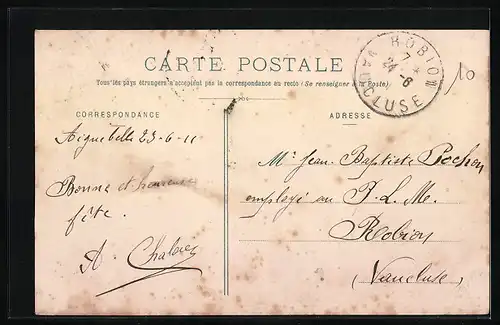 CARTE POSTALE
Tous les pays étrangers n'acceptent pas la correspondance au recto (Se renseigner à la Poste)
ROBION
7
24 - 6
VAUCLUSE
10
CORRESPONDANCE
ADRESSE
Aiguebelle 23-6-11
Bonne et heureuse
fête.
A
Mr Jean Baptiste
employé au P. L. M.
Robion
(Vaucluse)